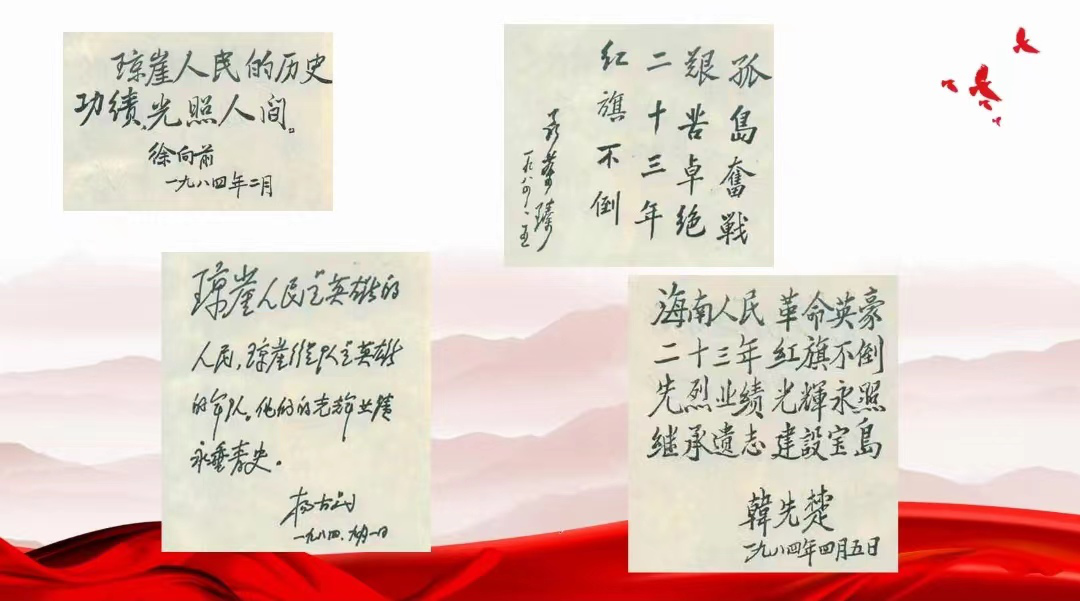 琼崖人民的历史
功绩、光照人间。
徐向前
一九八四年二月
孤島奮戰
艰苦卓绝
二十三年
红旗不倒
聂荣臻
一九八四、五
琼崖人民是英雄的
人民，琼崖纵队是英雄
的军队。他们的光辉业绩
永垂青史。
杨尚昆
一九八四、九月一日
海南人民 革命英豪
二十三年 红旗不倒
先烈业绩 光輝永照
继承遗志 建設宝島
韓先楚
一九八四年四月五日